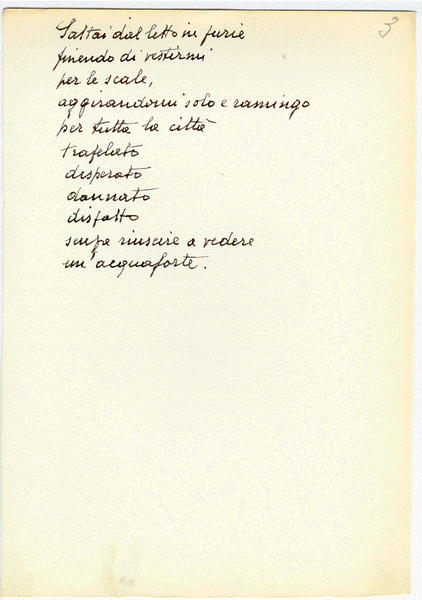 3
Saltai dal letto in furie
finendo di vestirmi
per le scale,
aggirandomi solo e ramingo
per tutta la città
trafelato
disperato
dannato
disfatto
senza riuscire a vedere
un'acquaforte.